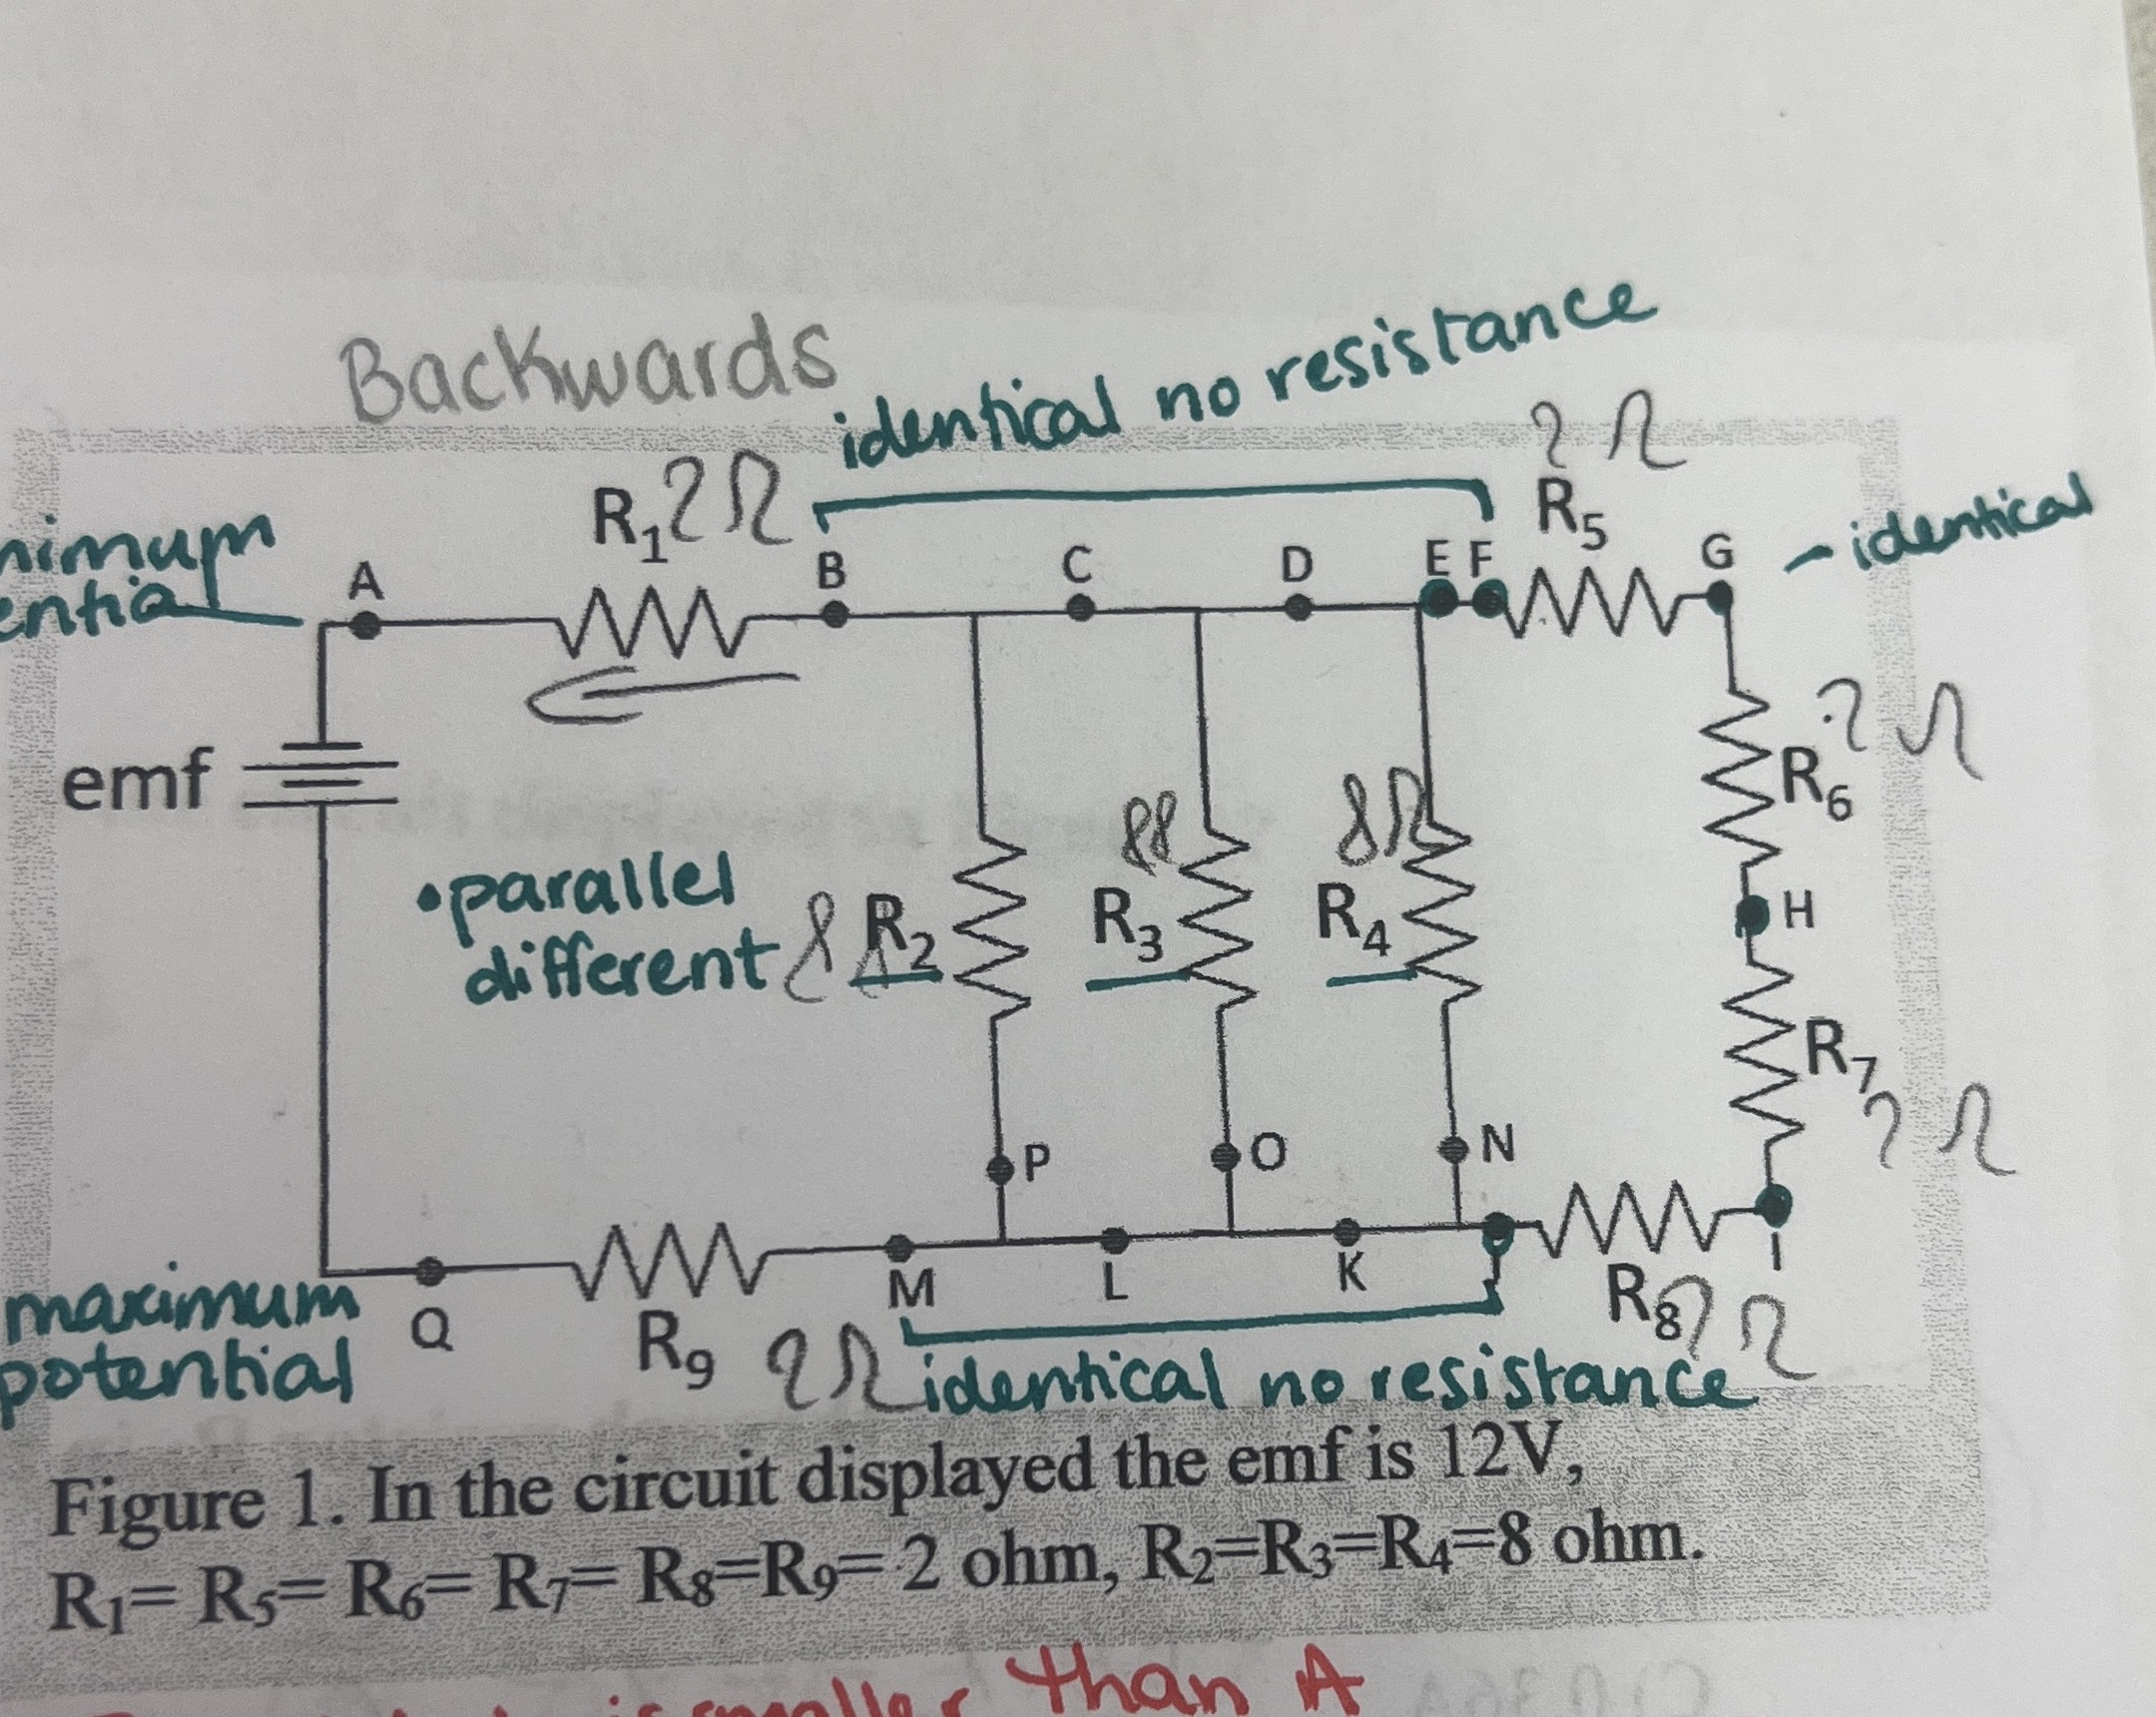 Backwards
identical no resistance
2 Ω
R5
R1 2 Ω
A
B
C
D
E F
G
- identical
emf
2 Ω
R6
H
•parallel
different
8 R2
88
R3
8Ω
R4
R7
2 Ω
P
O
N
M
L
K
I
R8 2 Ω
Q
R9 2Ω
maximum
potential
identical no resistance
Figure 1. In the circuit displayed the emf is 12V,
R1= R5= R6= R7= R8=R9= 2 ohm, R2=R3=R4=8 ohm.
is smaller than A